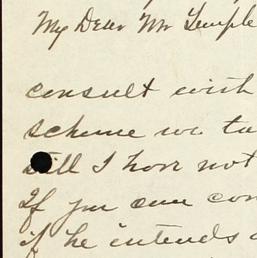 My Dear Mr Temple
consult with
scheme we ta
still I have not
If you can con
if he intends a